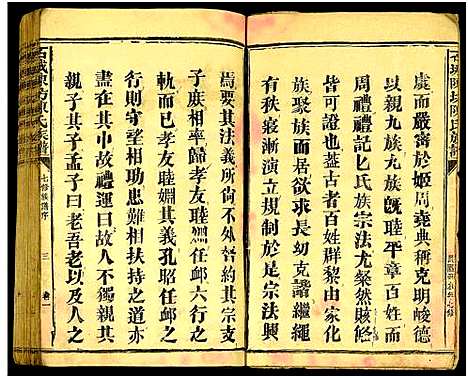 石城陳坊陳氏族譜
虞而嚴密於姬周堯典稱克明峻德
以親九族九族旣睦平章百姓而
周禮禮記匕氏族宗法尤粲然賅
皆可證也蓋古者百姓群黎由家化
族聚族而居欲求長幼克諧繼繩
有秩寖漸演進於是宗法興
焉要其法義所尙不外咎約其宗支
子庶相率歸孝友睦婣任䘏六行之
軌而已孝友睦婣其義孔昭任䘏之
行則守望相助患難相扶持之道
盡在其中故禮運曰故人不獨親其
親子其子孟子曰老吾老以及人之
石城陳坊陳氏族譜
七修族譜序
三
卷一